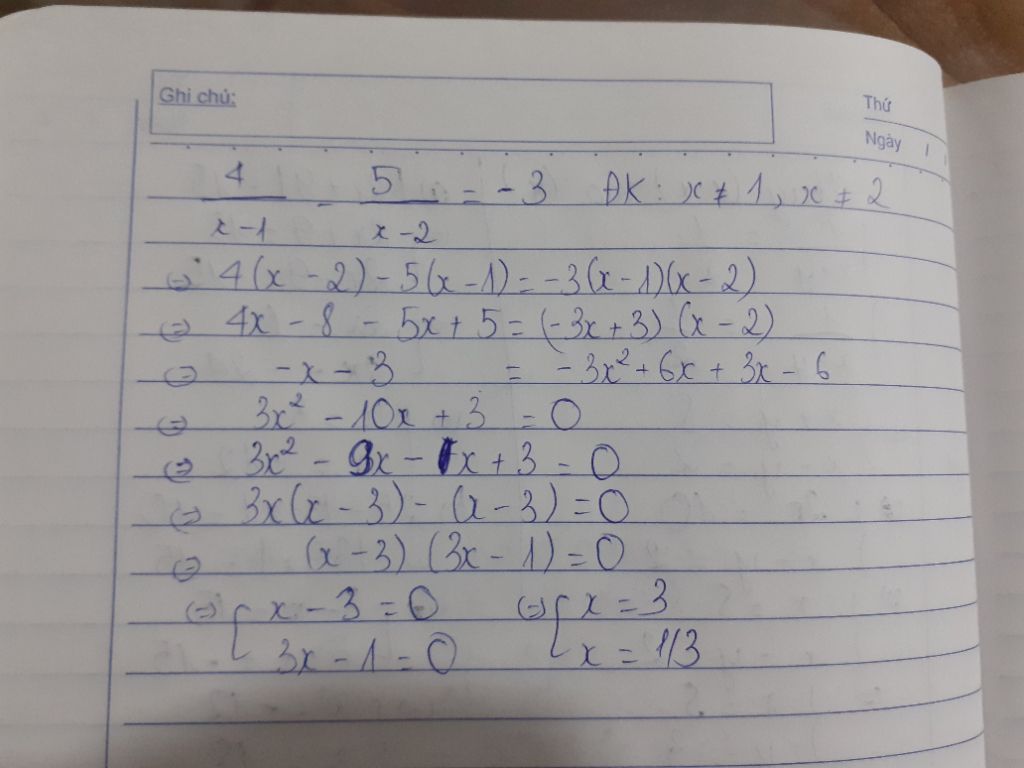 Ghi chú:
Thứ
Ngày / /
4/(x-1) - 5/(x-2) = -3 ĐK: x ≠ 1, x ≠ 2
(=) 4(x - 2) - 5(x - 1) = -3(x - 1)(x - 2)
(=) 4x - 8 - 5x + 5 = (-3x + 3)(x - 2)
(=) -x - 3 = -3x² + 6x + 3x - 6
(=) 3x² - 10x + 3 = 0
(=) 3x² - 9x - 1x + 3 = 0
(=) 3x(x - 3) - (x - 3) = 0
(=) (x - 3) (3x - 1) = 0
(=) [ x - 3 = 0 (=) [ x = 3
3x - 1 = 0 x = 1/3